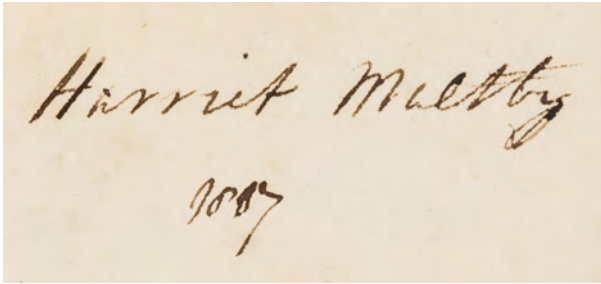 Harriet Maltby
1887